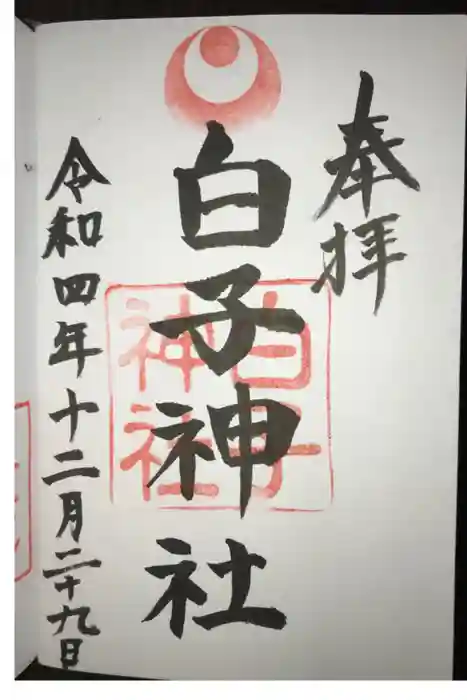 奉拝
白子神社
白子
神社
令和四年十二月二十九日